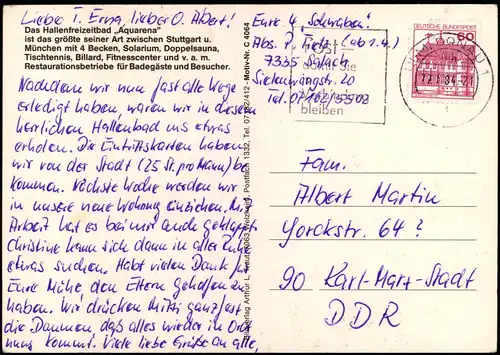 Liebe T. Erna, lieber O. Albert!
Das Hallenfreizeitbad „Aquarena"
ist das größte seiner Art zwischen Stuttgart u.
München mit 4 Becken, Solarium, Doppelsauna,
Tischtennis, Billard, Fitnesscenter und v. a. m.
Restaurationsbetriebe für Badegäste und Besucher.
Nachdem wir nun fast alle Wege
erledigt haben waren wir in diesem
herrlichen Hallenbad uns etwas
erholen. Die Eintrittskarten haben
wir von der Stadt (25 St. pro Mann) be-
kommen. Nächste Woche werden wir
in unsere neue Wohnung einziehen. Mit
Arbeit hat es bei mir auch geklappt
Christine kann sich dann in aller Ruhe
etwas suchen. Habt vielen Dank für
Eure Mühe den Eltern geholfen zu
haben. Wir drücken Mitzi ganz fest
die Daumen, daß alles wieder in Ord-
nung kommt. Viele liebe Grüße an alle,
Eure 4 „Schwaben"
Abs. P. (ab 1.4.)
7335 Salach
20
Tel. 07162/5502
Post
bleiben
DEUTSCHE BUNDESPOST
60
ULM (DONAU) 1
84-21
07 32/412 - Motiv-Nr. C 4064
Postfach 1332, Tel.
Fam.
Albert Martin
Yorckstr. 64 ?
90 Karl-Marx-Stadt
DDR